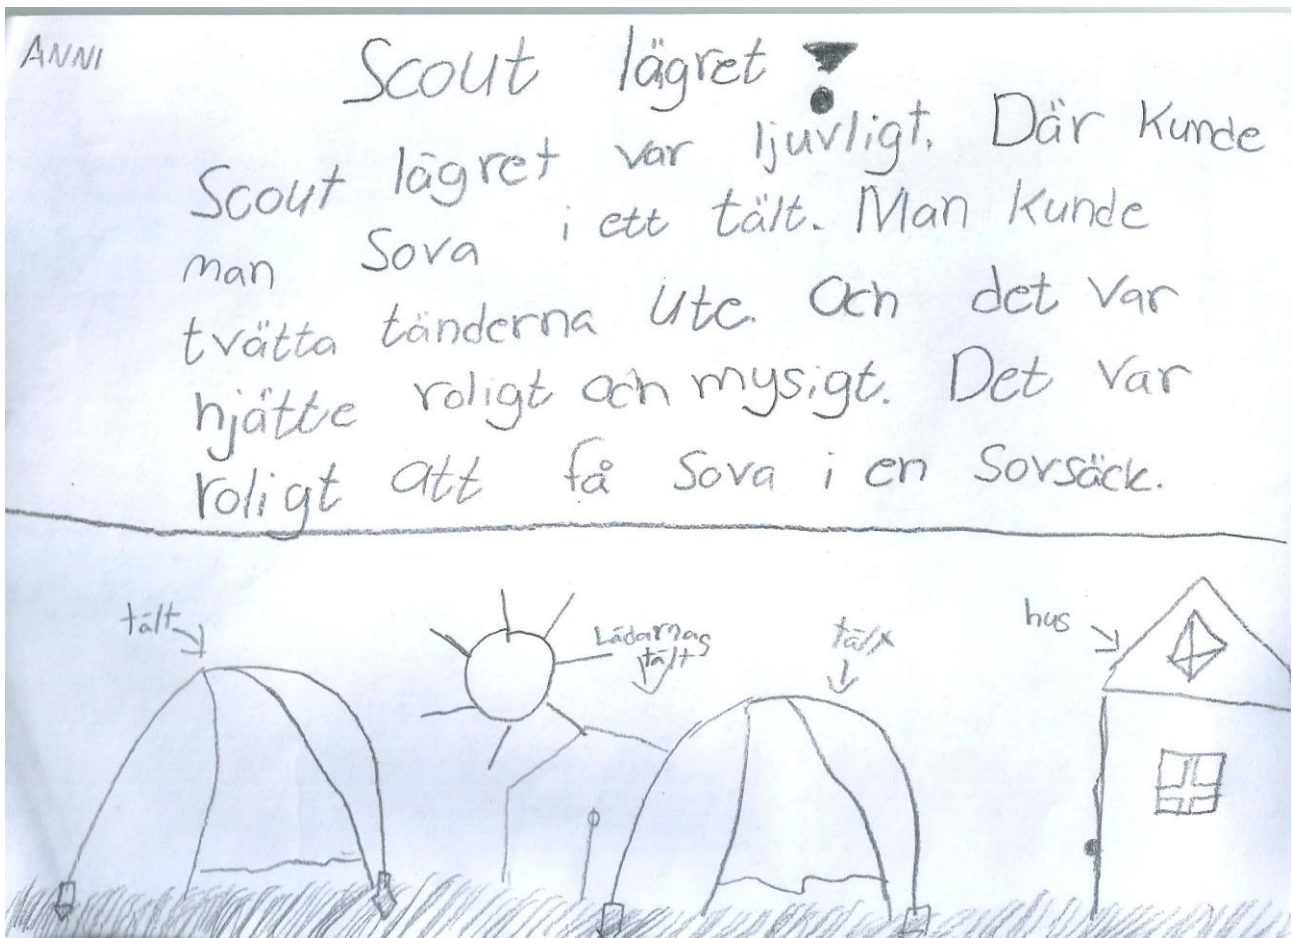 ANNI
Scout lägret!
Scout lägret var ljuvligt. Där kunde
man sova i ett tält. Man kunde
tvätta tänderna ute. Och det var
hjätte roligt och mysigt. Det var
roligt att få sova i en sovsäck.
tält
Lädarnas
tält
tält
hus